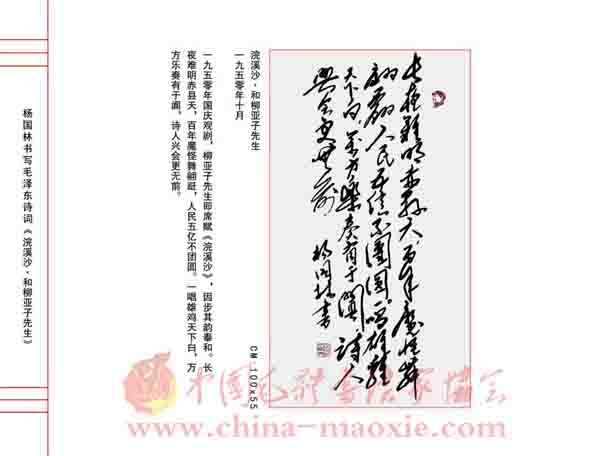 长夜难明赤县天百年魔怪舞
翩跹人民五亿不團圆一唱雄鸡
天下白萬方樂奏有于阗詩人
興会更無前
杨国林书
CM:100x55
浣溪沙·和柳亚子先生
一九五零年十月
一九五零年国庆观剧，柳亚子先生即席赋《浣溪沙》，因步其韵奉和。长
夜难明赤县天，百年魔怪舞翩跹，人民五亿不团圆。一唱雄鸡天下白，万
方乐奏有于阗，诗人兴会更无前。
杨国林书写毛泽东诗词《浣溪沙·和柳亚子先生》
中国毛体书法家协会
www.china-maoxie.com